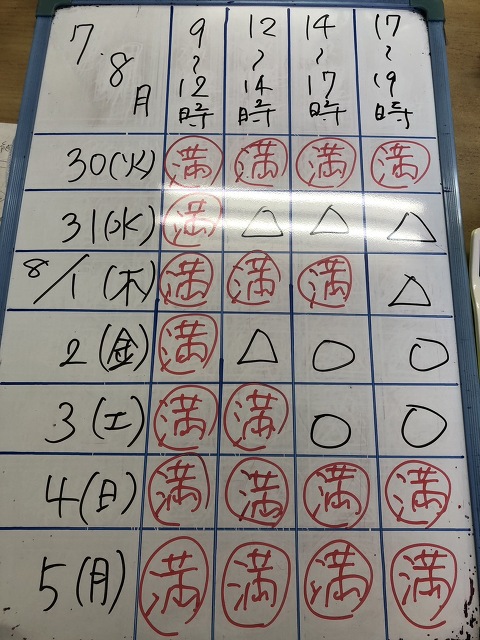 7.8月 9~12時 12~14時 14~17時 17~19時
30(火) 満 満 満 満
31(水) 満 △ △ △
8/1(木) 満 満 満 △
2(金) 満 △ ○ ○
3(土) 満 満 ○ ○
4(日) 満 満 満 満
5(月) 満 満 満 満